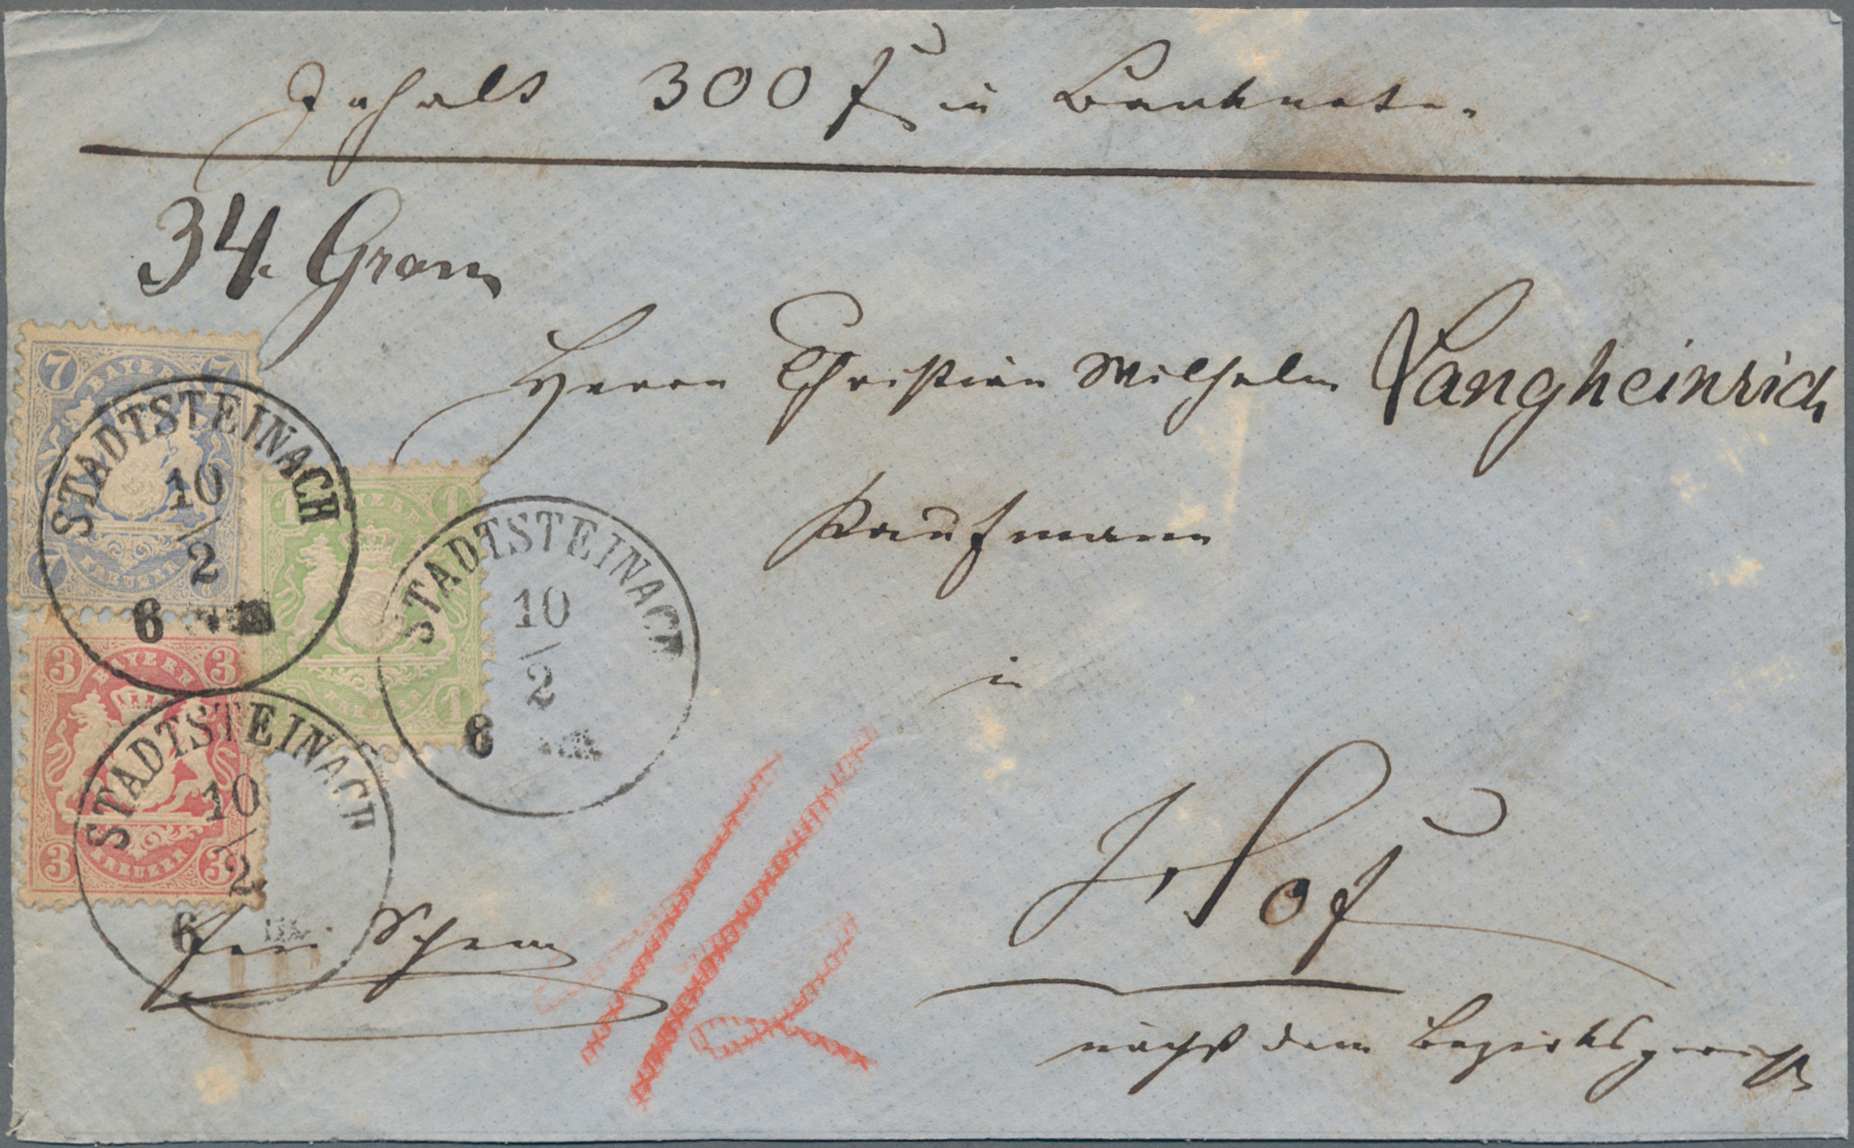 Inhalt 300 f in Banknoten
34. Gram
Herrn Christian Wilhelm Langheinrich
Kaufmann
in
Hof
nächst dem Bezirksgericht
frei
7 7
BAYERN
KREUZER
7 7
STADTSTEINACH
10
2
6
1 1
BAYERN
KREUZER
1 1
STADTSTEINACH
10
2
6
3 3
BAYERN
KREUZER
3 3
STADTSTEINACH
10
2
6